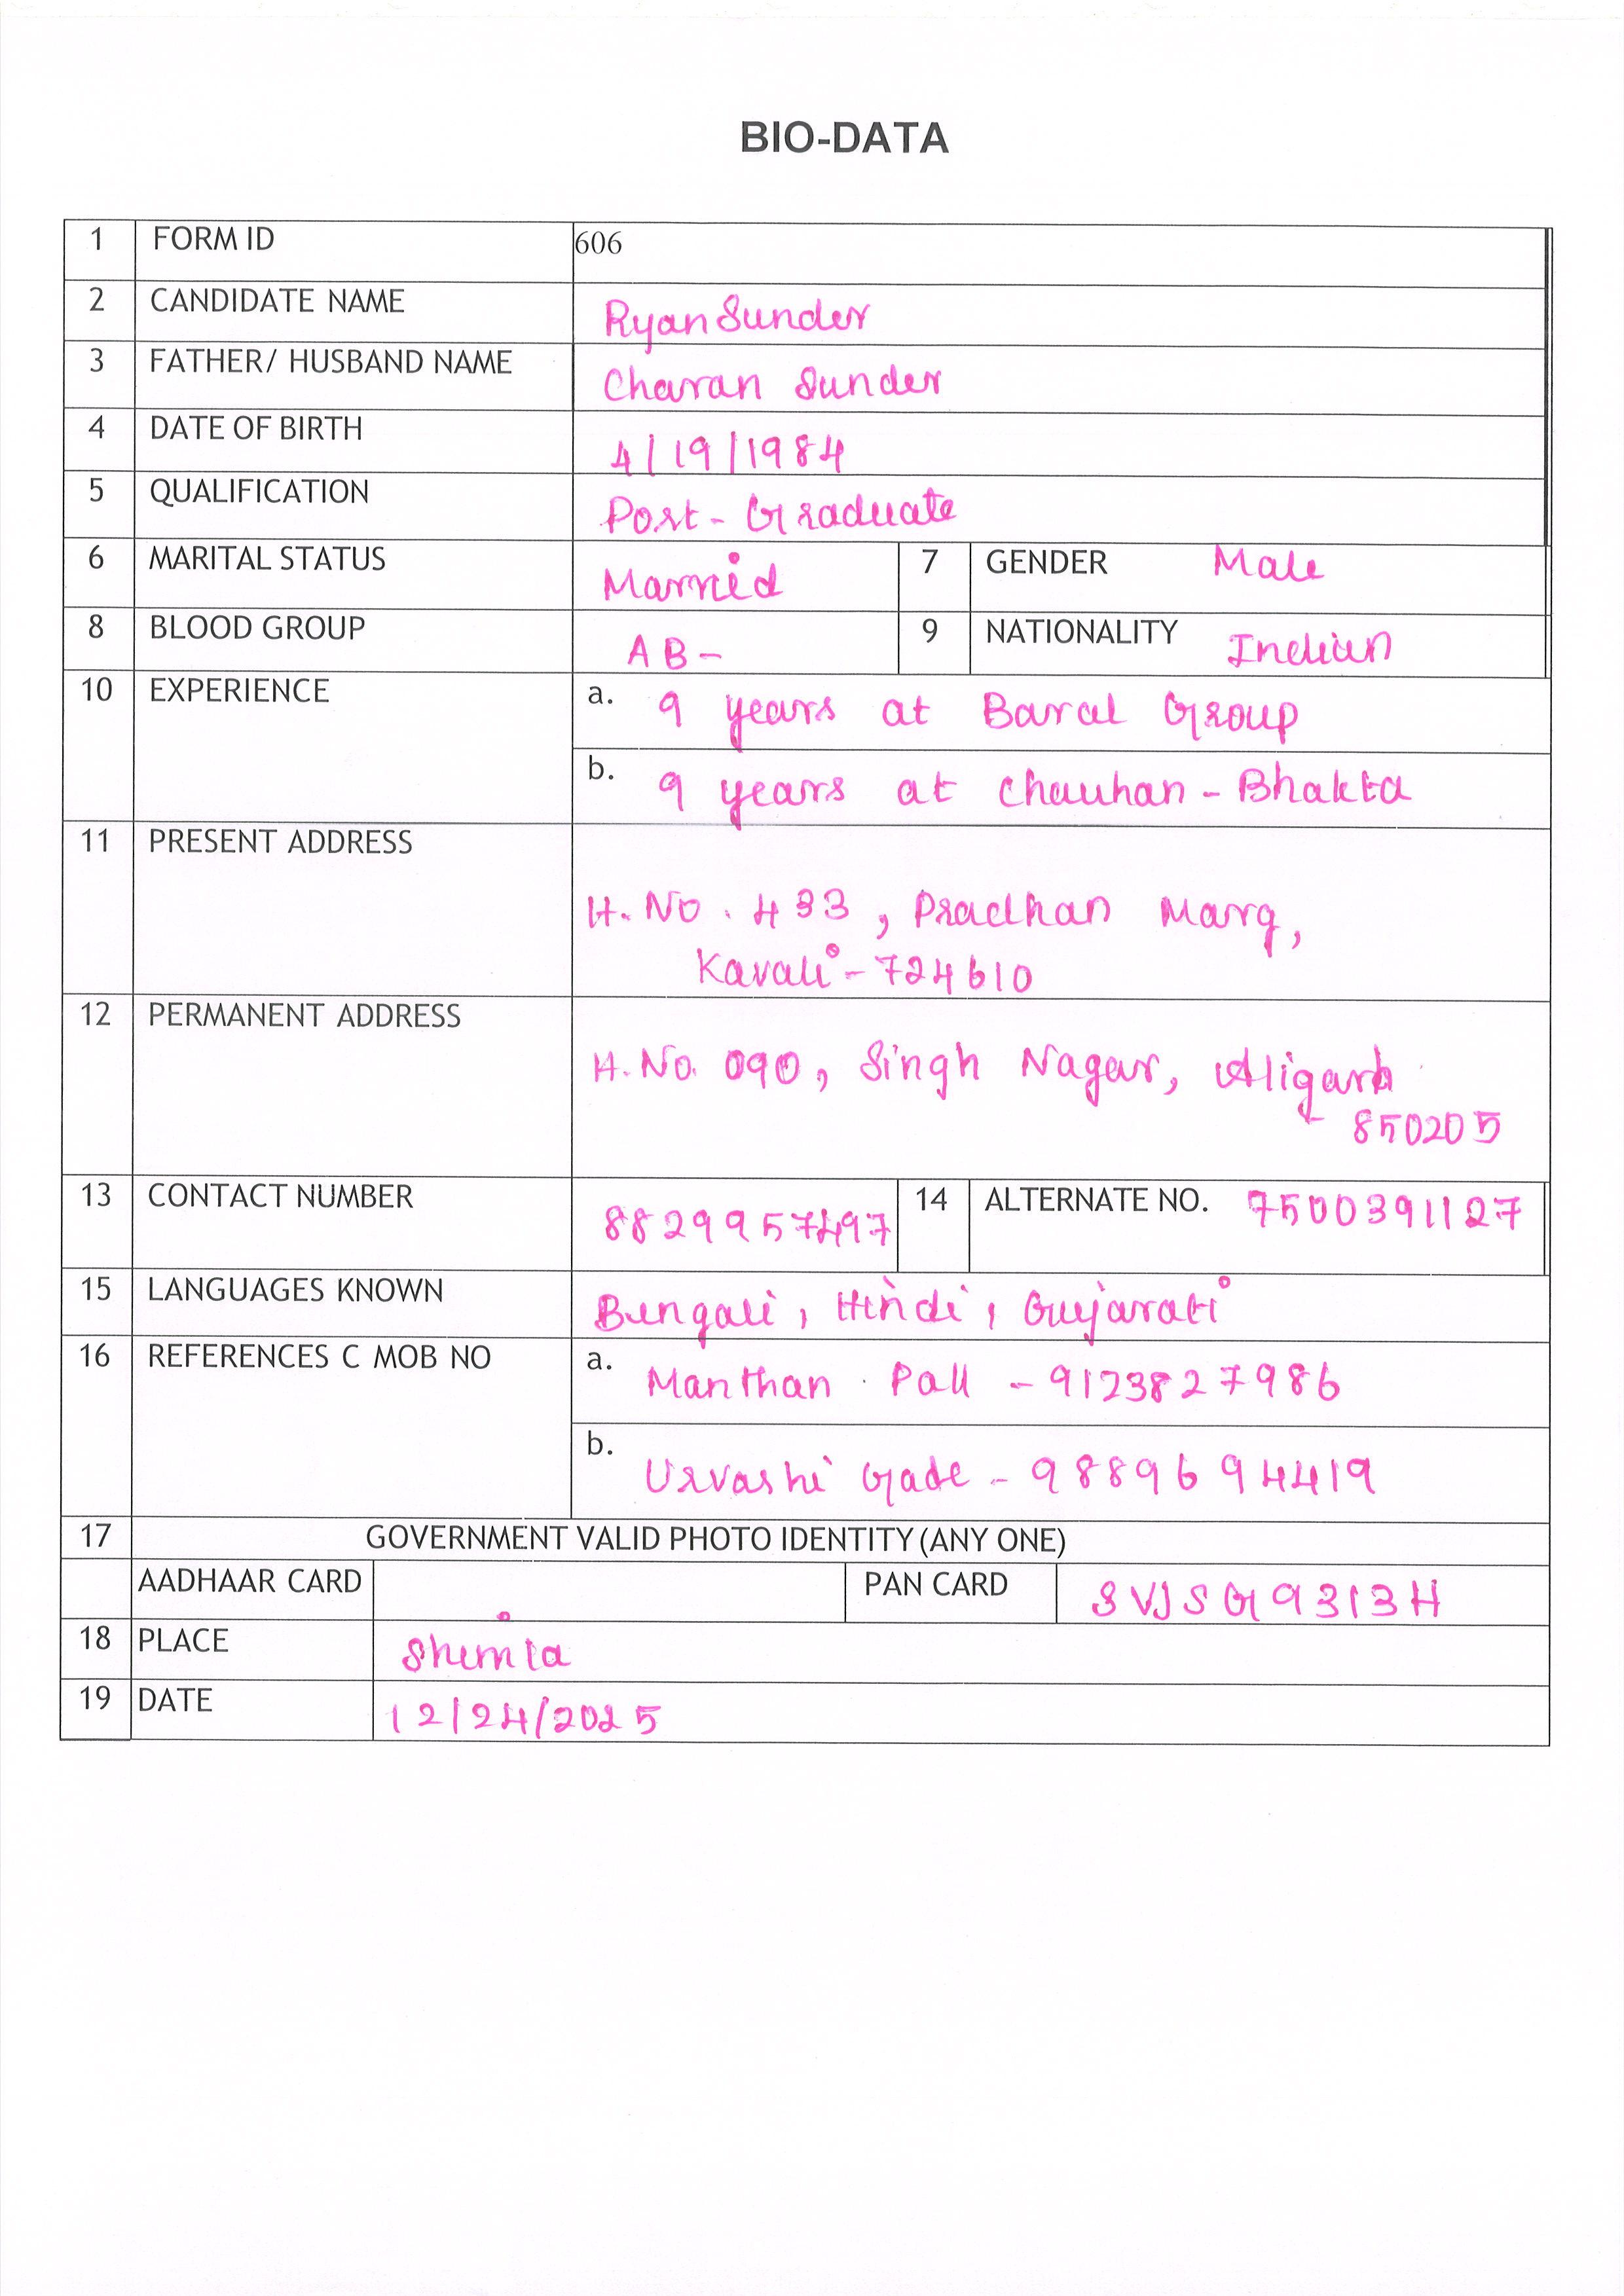 BIO-DATA
1 FORM ID 606
2 CANDIDATE NAME Ryan Sunder
3 FATHER/ HUSBAND NAME Charan Sunder
4 DATE OF BIRTH 4/19/1984
5 QUALIFICATION Post-Graduate
6 MARITAL STATUS Married 7 GENDER Male
8 BLOOD GROUP AB- 9 NATIONALITY Indian
10 EXPERIENCE a. 9 years at Baral Group
b. 9 years at Chauhan-Bhakta
11 PRESENT ADDRESS
H.No. 433, Pradhan Marg,
Kavali-724610
12 PERMANENT ADDRESS
H.No. 090, Singh Nagar, Aligarh
- 850205
13 CONTACT NUMBER 8829957497 14 ALTERNATE NO. 7500391127
15 LANGUAGES KNOWN Bengali, Hindi, Gujarati
16 REFERENCES C MOB NO a. Manthan Pall - 9123827986
b. Urvashi Gade - 9889694419
17 GOVERNMENT VALID PHOTO IDENTITY (ANY ONE)
AADHAAR CARD PAN CARD SVJSG9313H
18 PLACE Shimla
19 DATE 12/24/2025